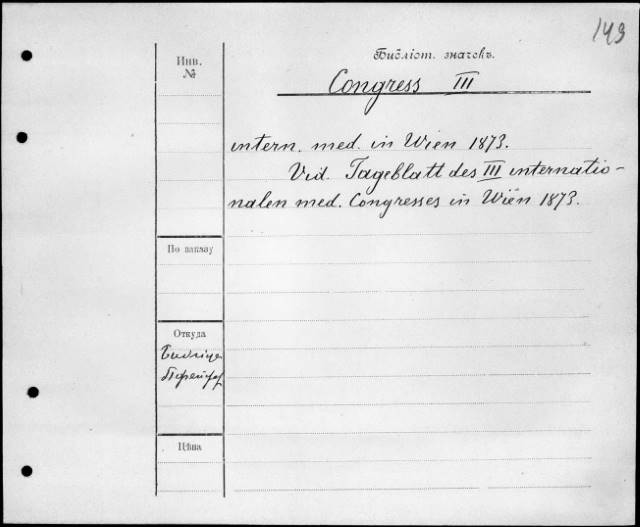 143
Библіот. значекъ.
Инв.
№
Congress III
intern. med. in Wien 1873.
Vid. Tageblatt des III internatio-
nalen med. Congresses in Wien 1873.
По заказу
Откуда
Цѣна